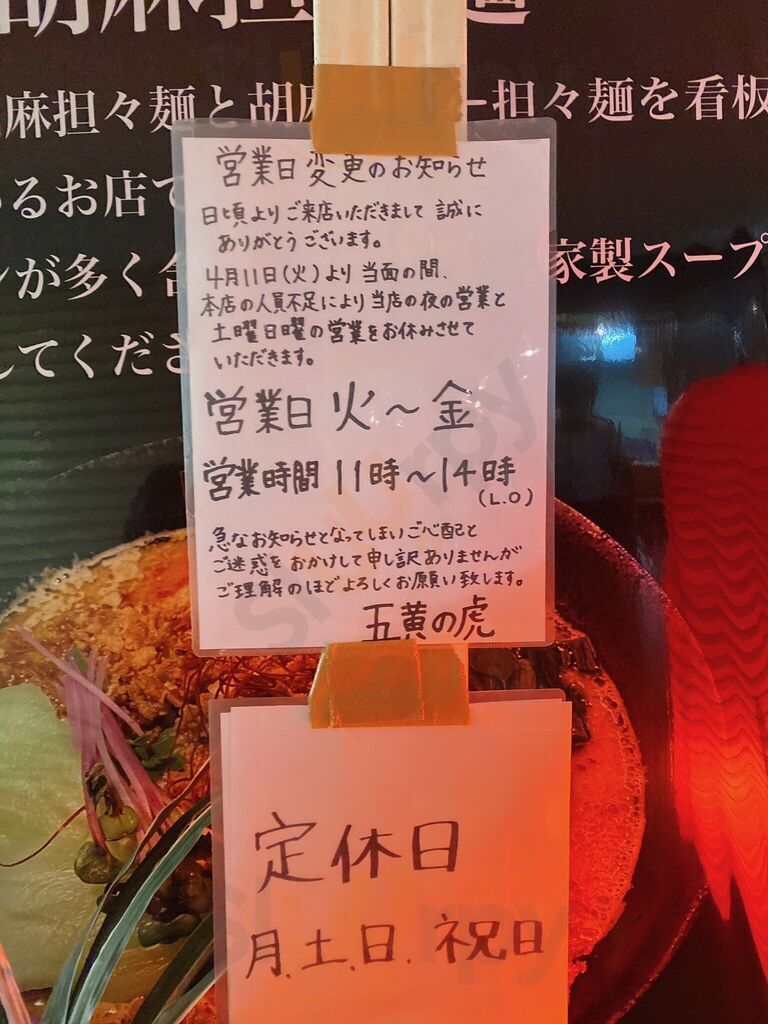 胡麻担々麺
麻担々麺と胡麻 ー担々麺を看板
るお店で
が多く含 家製スープ
してくださ
営業日変更のお知らせ
日頃よりご来店いただきまして 誠に
ありがとうございます。
4月11日(火)より当面の間、
本店の人員不足により当店の夜の営業と
土曜日曜の営業をお休みさせて
いただきます。
営業日 火〜金
営業時間 11時〜14時
(L.O)
急なお知らせとなってしまいご心配と
ご迷惑をおかけして申し訳ありませんが
ご理解のほどよろしくお願い致します。
五黄の虎
定休日
月、土、日、祝日